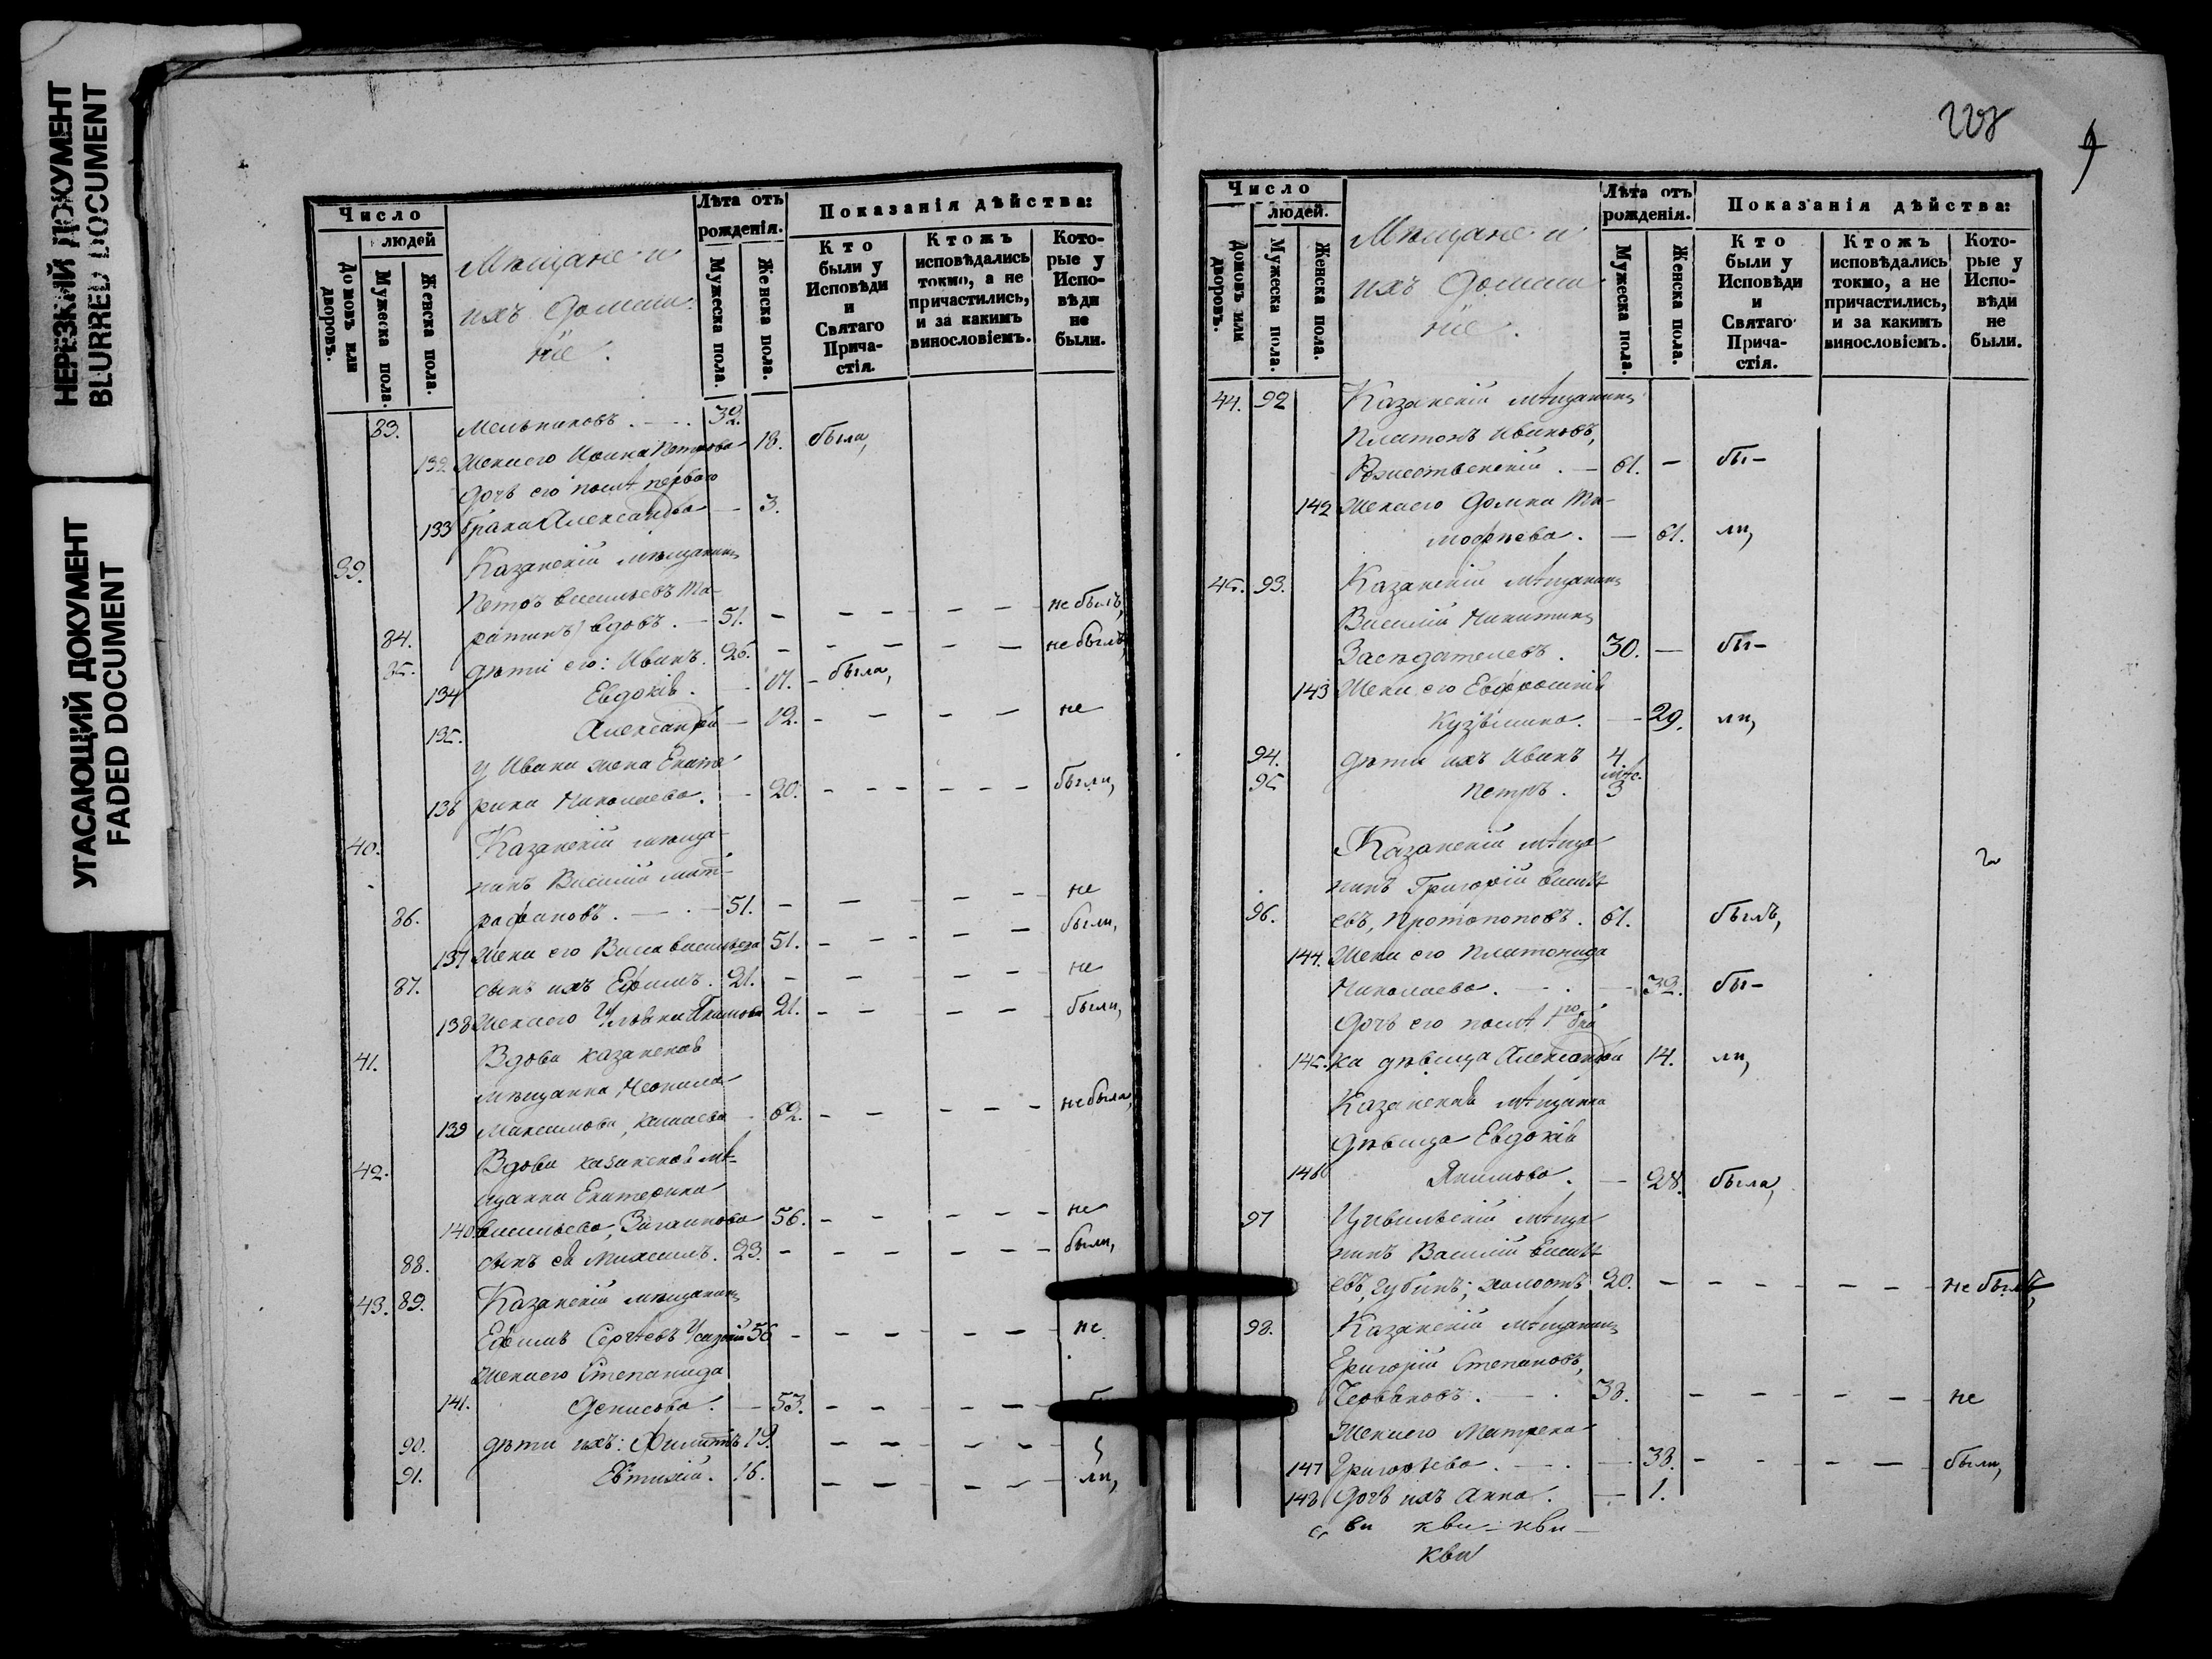 НЕРЕЗКИЙ ДОКУМЕНТ
BLURRED DOCUMENT
УГАСАЮЩИЙ ДОКУМЕНТ
FADED DOCUMENT
Число
людей
Домовъ или дворовъ.
Мужеска пола.
Женска пола.
Мѣщане и
ихъ домаш
ніе.
Лѣта отъ
рожденія.
Мужеска пола.
Женска пола.
Показанія дѣйства:
Кто
были у
Исповѣди
и
Святаго
Прича-
стія.
Ктожъ
исповѣдались
токмо, а не
причастились,
и за какимъ
винословіемъ.
Кото-
рые у
Испо-
вѣди
не
были.
83. Мельниковъ. 32.
132 Жена его Ирина Петрова 18. была,
дочь его послѣ перваго
133 брака Александра — 3.
39. Казанскій мѣщанинъ
Петръ Васильевъ
84. вдовъ. — 51. — — — — — — не былъ,
85. дѣти его: Иванъ. 25. — — — — — — не былъ,
134 Евдокія. — 17. — была,
135. Александра — 12. — — — — не
у Ивана жена Екате
136 рина Николаева. — 20. — — — — — — были,
40. Казанскій мѣща-
нинъ Василій Мит-
86. рофановъ. — 51. — — — — — не
137 Жена его Васильева 51. — — — — — были,
87. сынъ ихъ Ефимъ. 21. — — — — — не
138 Жена его Акимова 21. — — — — — были,
41. Вдова казанская
мѣщанка Неонила
139 Максимова, — 62. — — — — — не была,
42. Вдова казанская мѣ-
щанка Екатерина
140. Васильева, 56. — — — — — не
88. сынъ ея Михаилъ. 23. — — — — — — были,
43. 89. Казанскій мѣщанинъ
Ефимъ Сергѣевъ 56 — — — — — — не
Жена его Степанида
141. Денисова. — 53. — — — —
90. дѣти ихъ: Филиппъ 19. — — — — —
91. Евтихій. 16. — — — — — ли,
Число
людей.
Домовъ или дворовъ.
Мужеска пола.
Женска пола.
Мѣщане и
ихъ домаш
ніе.
Лѣта отъ
рожденія.
Мужеска пола.
Женска пола.
Показанія дѣйства:
Кто
были у
Исповѣди
и
Святаго
Прича-
стія.
Ктожъ
исповѣдались
токмо, а не
причастились,
и за какимъ
винословіемъ.
Кото-
рые у
Испо-
вѣди
не
были.
44. 92 Казанскій мѣщанинъ
Платонъ Ивановъ,
Рожественскій. — 61. — бы-
142 Жена его Домна Ти-
мофѣева. — 61. ли,
45. 93. Казанскій мѣщанинъ
Василій Никитинъ
Засѣдателевъ. 30. — бы-
143 Жена его Евфросинія
Кузьмина. — 29. ли,
94. дѣти ихъ Иванъ 4.
мѣс.
95 Петръ. 3
Казанскій мѣща
нинъ Григорій Василь
96. евъ, Протопоповъ. 61. былъ,
144. Жена его Платонида
Николаева. — — 32. бы-
дочь его послѣ 1го бра
145. ка дѣвица Александра 14. ли,
Казанская мѣщанка
дѣвица Евдокія
146 Якимова. — 28. была,
97 Цивильскій мѣща
нинъ Василій Василь
евъ, Губинъ; холостъ 20. — — — — — — не былъ,
98. Казанскій мѣщанинъ
Григорій Степановъ,
Червяковъ. — 38. — — — — — не
Жена его Матрена
147 Григорьева. — — 38. — — — — — были,
148 Дочь ихъ Анна. — 1.